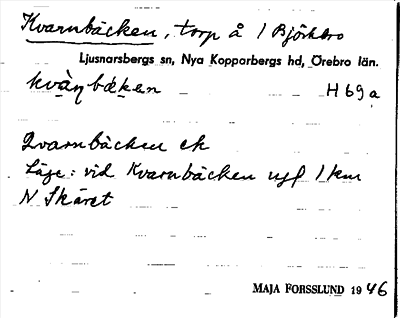 Kvarnbäcken, torp å / Björkbro
Ljusnarsbergs sn, Nya Kopparbergs hd, Örebro län.
kvàṇbäken H 69 a
Qvarnbäcken ek
Läge: vid Kvarnbäcken ung. 1 km
N Skäret
MAJA FORSSLUND 1946